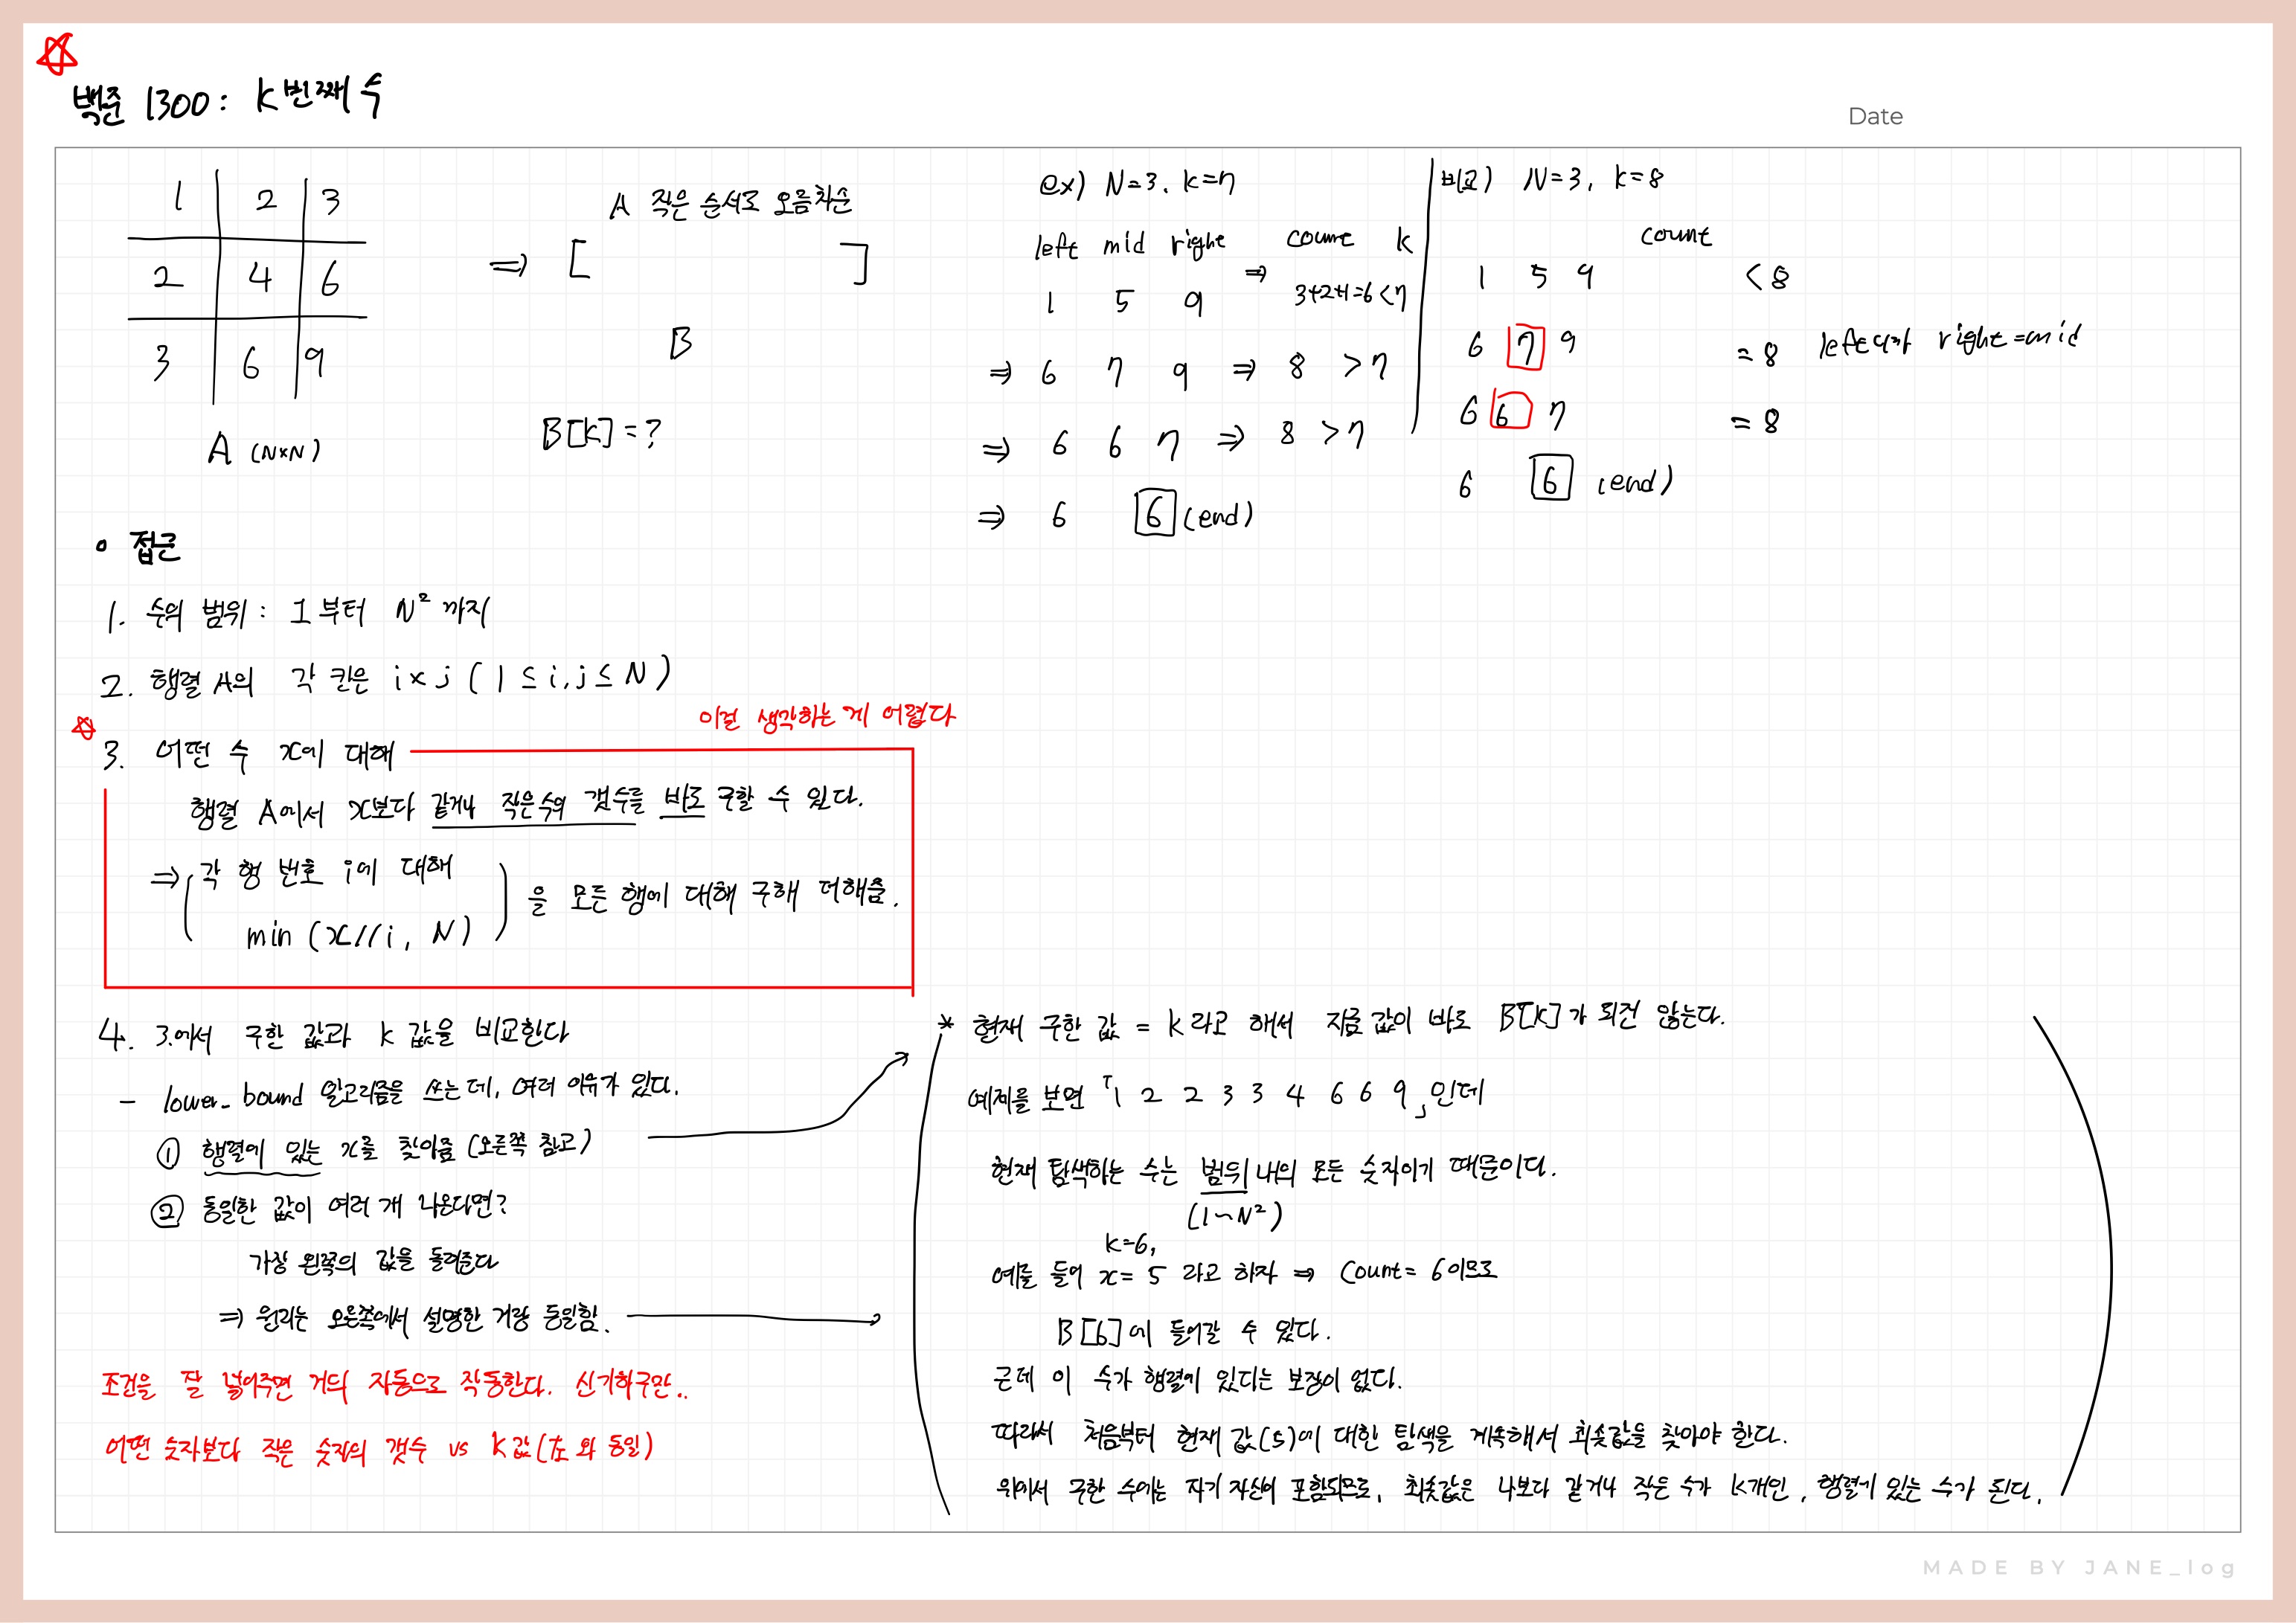 백준 1300 : K번째 수
Date
1 2 3
2 4 6
3 6 9
A (N×N)
⇒ [ ]
A 작은 순서로 오름차순
B
B[k] = ?
ex) N=3, k=7
left mid right ⇒ count k
1 5 9 3+2+1=6 < 7
⇒ 6 7 9 ⇒ 8 > 7
⇒ 6 6 7 ⇒ 8 > 7
⇒ 6 6 (end)
비교) N=3, k=8
count
1 5 9 < 8
6 7 9 = 8 left 대까 right=mid
6 6 7 = 8
6 6 (end)
• 접근
1. 수의 범위 : 1부터 N² 까지
2. 행렬 A의 각 칸은 i×j ( 1 ≤ i, j ≤ N )
이걸 생각하는 게 어렵다
3. 어떤 수 x에 대해
행렬 A에서 x보다 같거나 작은 수의 갯수를 바로 구할 수 있다.
⇒ ( 각 행 번호 i에 대해
min (x//i, N) ) 을 모든 행에 대해 구해 더해줌.
4. 3.에서 구한 값과 k 값을 비교한다
- lower_bound 알고리즘을 쓰는데, 여러 이유가 있다.
① 행렬에 있는 x를 찾아줌 (오른쪽 참고)
② 동일한 값이 여러 개 나온다면?
가장 왼쪽의 값을 돌려준다
⇒ 원리는 오른쪽에서 설명한 거랑 동일함.
조건을 잘 넣어주면 거의 자동으로 작동한다. 신기하구만..
어떤 숫자보다 작은 숫자의 갯수 vs K값 (左와 동일)
* 현재 구한 값 = k 라고 해서 지금 값이 바로 B[k]가 되진 않는다.
예제를 보면 「1 2 2 3 3 4 6 6 9」인데
현재 탐색하는 수는 범위 내의 모든 숫자이기 때문이다.
(1~N²)
k=6,
예를 들어 x= 5 라고 하자 ⇒ Count= 6이므로
B[6]에 들어갈 수 있다.
근데 이 수가 행렬에 있다는 보장이 없다.
따라서 처음부터 현재 값(5)에 대한 탐색을 계속해서 최솟값을 찾아야 한다.
위에서 구한 수에는 자기 자신이 포함되므로, 최솟값은 나보다 같거나 작은 수가 k개인, 행렬에 있는 수가 된다.
MADE BY JANE_log